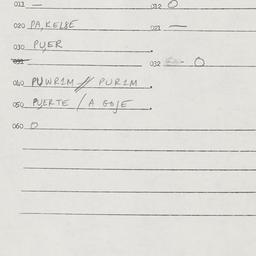 011 — 012 O
020 PA, KEL8E 021 —
030 PUER .
031 032 O
040 PUWR1M // PUR1M .
050 PUERTE / A GOJE .
060 O